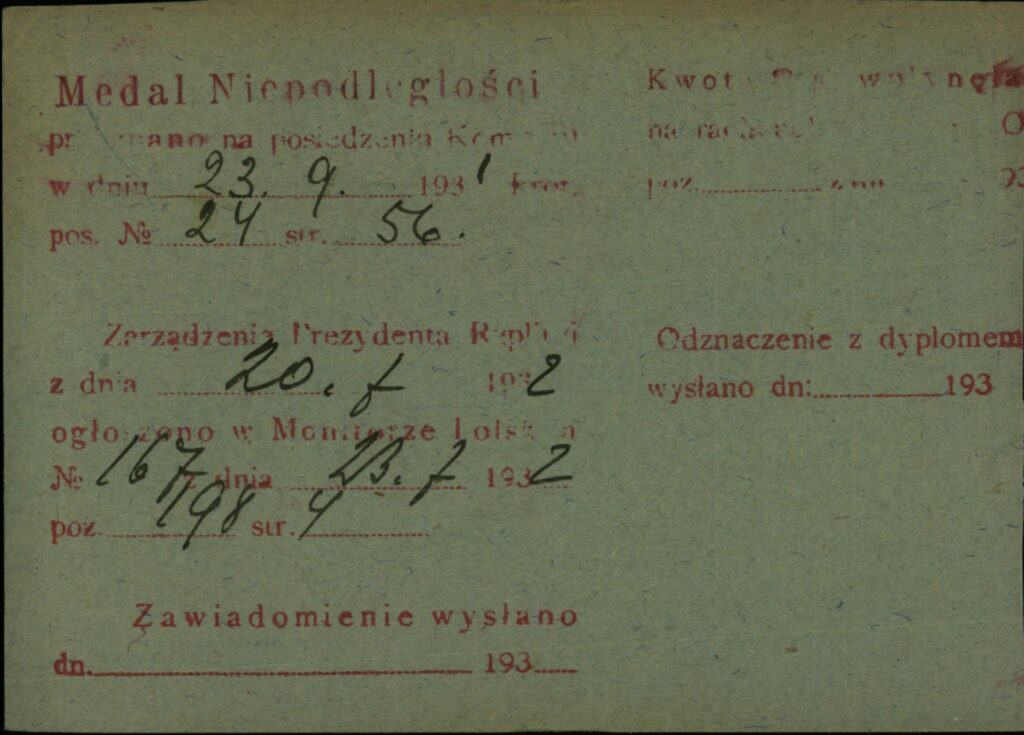 Medal Niepodległości
przyznano na posiedzeniu Komitetu
w dniu 23. 9. 1931
pos. № 24 str. 56.
Zarządzenia Prezydenta Rzplitej
z dnia 20. 7 1932
ogłoszono w Monitorze Polskim
№ 167 z dnia 23. 7 1932
poz. 198 str. 4
Zawiadomienie wysłano
dn. 193
Kwota wpłynęła
na rach.
poz.
Odznaczenie z dyplomem
wysłano dn: 193